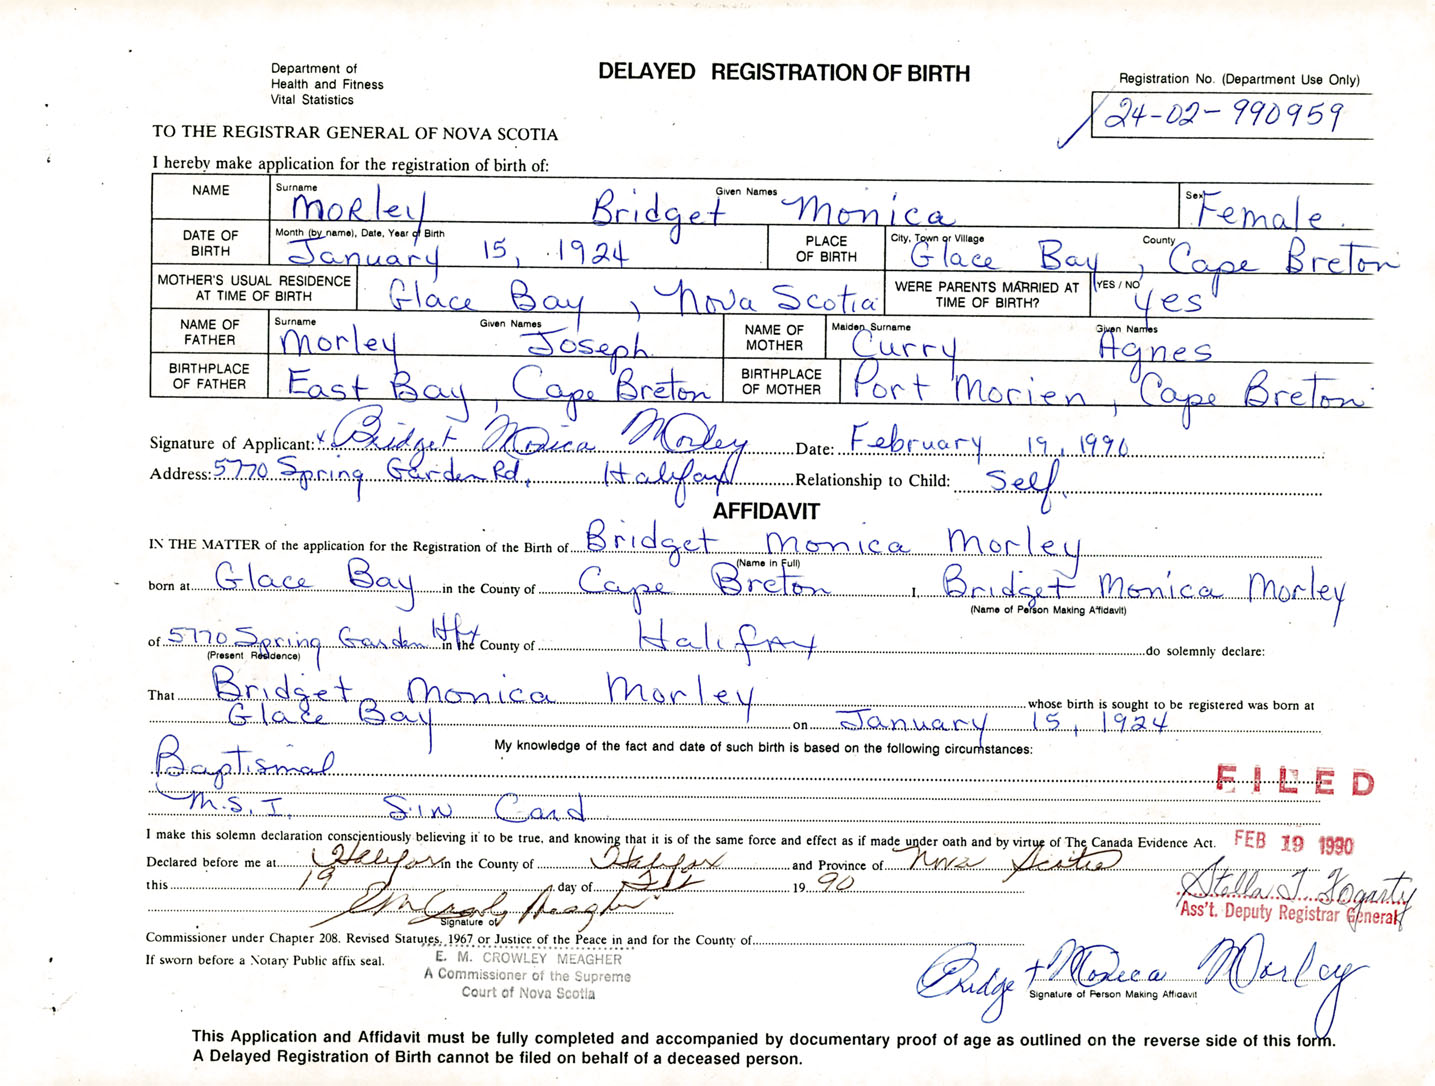 Department of
Health and Fitness
Vital Statistics
DELAYED REGISTRATION OF BIRTH
Registration No. (Department Use Only)
24-02-990959
TO THE REGISTRAR GENERAL OF NOVA SCOTIA
I hereby make application for the registration of birth of:
NAME Surname Morley Given Names Bridget Monica Sex Female.
DATE OF BIRTH Month (by name), Date, Year of Birth January 15, 1924 PLACE OF BIRTH City, Town or Village Glace Bay, County Cape Breton
MOTHER'S USUAL RESIDENCE AT TIME OF BIRTH Glace Bay, Nova Scotia WERE PARENTS MARRIED AT TIME OF BIRTH? YES / NO Yes
NAME OF FATHER Surname Morley Given Names Joseph NAME OF MOTHER Maiden Surname Curry Given Names Agnes
BIRTHPLACE OF FATHER East Bay, Cape Breton BIRTHPLACE OF MOTHER Port Morien, Cape Breton
Signature of Applicant: x Bridget Monica Morley Date: February 19, 1990
Address: 5770 Spring Garden Rd, Halifax Relationship to Child: Self.
AFFIDAVIT
IN THE MATTER of the application for the Registration of the Birth of Bridget Monica Morley
(Name in Full)
born at Glace Bay in the County of Cape Breton I, Bridget Monica Morley
(Name of Person Making Affidavit)
of 5770 Spring Garden Hfx in the County of Halifax do solemnly declare:
(Present Residence)
That Bridget Monica Morley whose birth is sought to be registered was born at
Glace Bay on January 15, 1924
My knowledge of the fact and date of such birth is based on the following circumstances:
Baptismal
FILED
M.S.I. SIN Card
I make this solemn declaration conscientiously believing it to be true, and knowing that it is of the same force and effect as if made under oath and by virtue of The Canada Evidence Act.
FEB 19 1990
Declared before me at Halifax in the County of Halifax and Province of Nova Scotia
this 19 day of Feb 19 90
Stella T. Fogarty
Ass't. Deputy Registrar General
EM Crowly Meagher
Signature of
Commissioner under Chapter 208. Revised Statutes, 1967 or Justice of the Peace in and for the County of
If sworn before a Notary Public affix seal.
E. M. CROWLEY MEAGHER
A Commissioner of the Supreme
Court of Nova Scotia
Bridget Monica Morley
Signature of Person Making Affidavit
This Application and Affidavit must be fully completed and accompanied by documentary proof of age as outlined on the reverse side of this form.
A Delayed Registration of Birth cannot be filed on behalf of a deceased person.